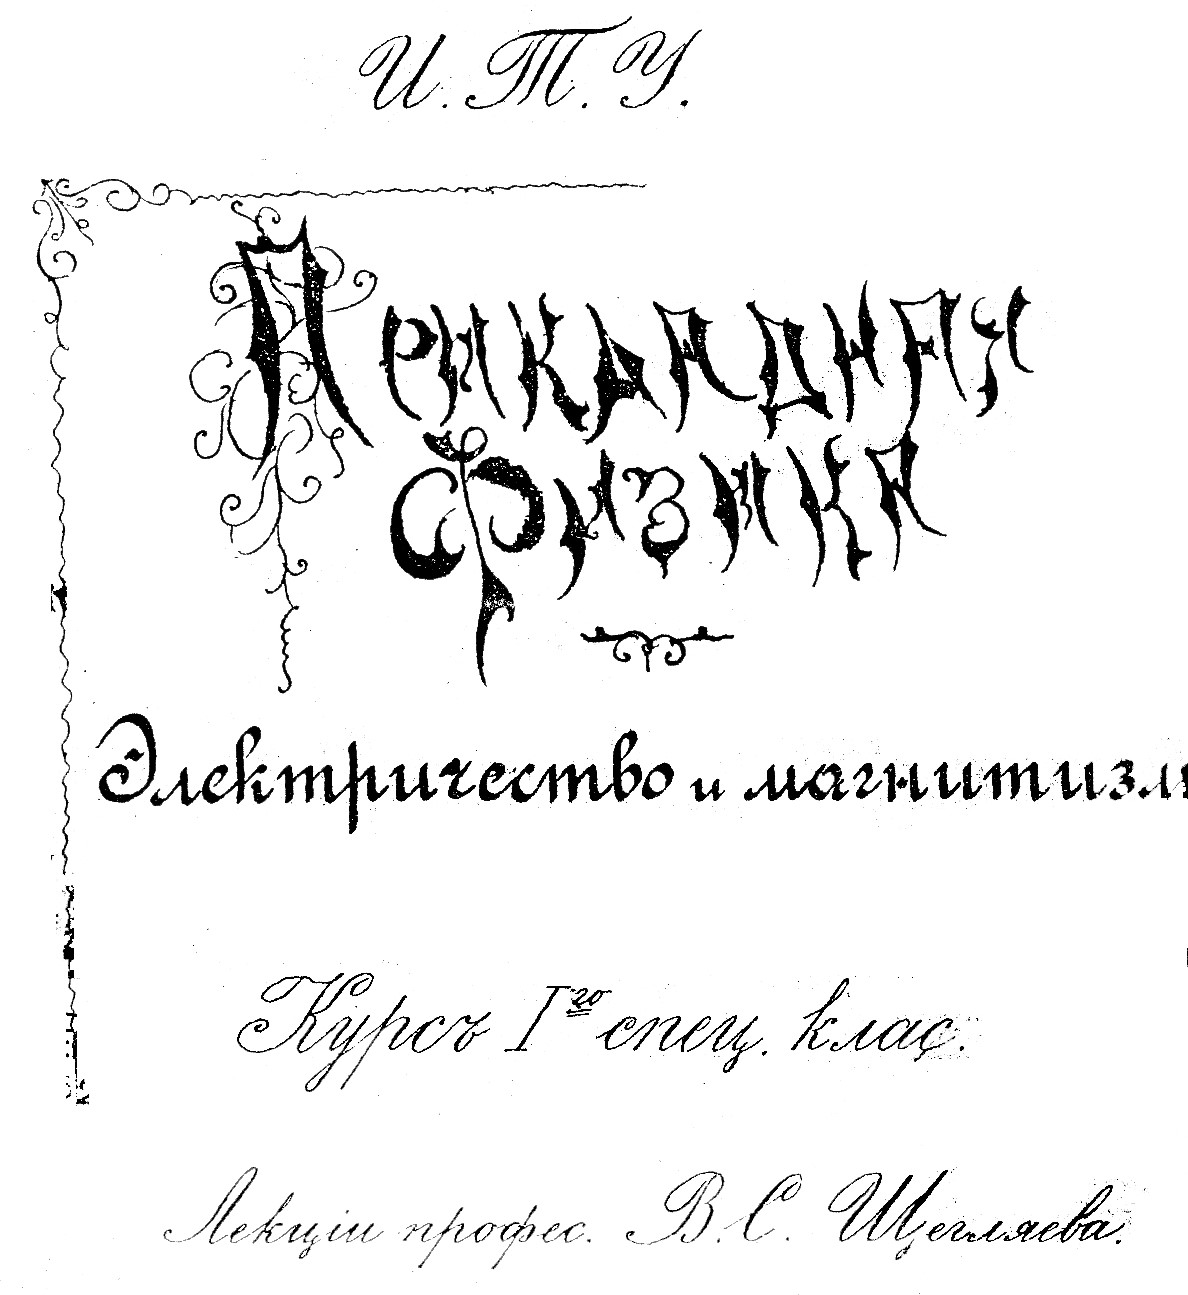 И. Т. У.
Прикладная
Физика
Электричество и магнитизм
Курсъ Iго спец. клас.
Лекціи профес. В. С. Щегляева.